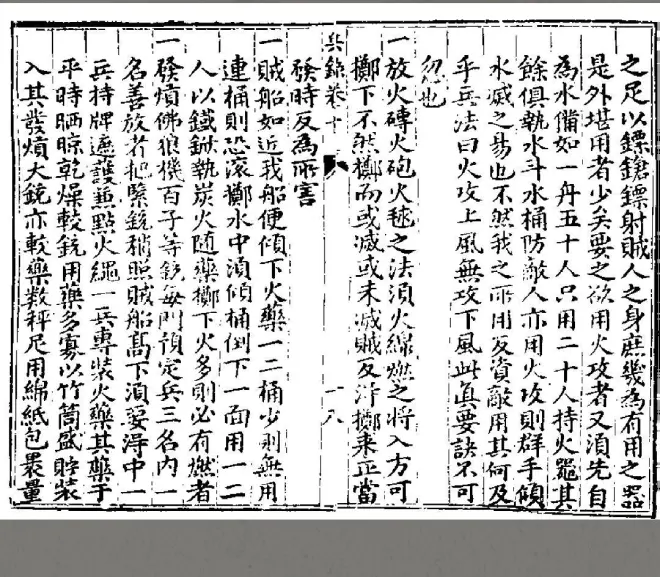 之足以鏢鎗鏢射賊人之身庶幾為有用之器
是外堪用者少矣要之欲用火攻者又須先自
為水備如一舟五十人只用二十人持火噐其
餘俱執水斗水桶防敵人亦用火攻則群手傾
水滅之易也不然我之所用反資敵用其何及
乎兵法曰火攻上風無攻下風此真要訣不可
忽也
一放火磚火砲火毬之法須火線燃之將入方可
擲下不然擲而或滅或未滅賊反汙擲来正當
兵錄卷十
十八
發時反為所害
一賊船如近我船便傾下火藥一二桶少則無用
連桶則恐滚擲水中須傾桶倒下一面用一二
人以鐵鍁執炭火随藥擲下火多則必有燃者
一發熕佛狼機百子等銃每門預定兵三名内一
名善放者把緊銃稍照賊船髙下須要淂中一
兵持牌遮護並點火繩一兵專装火藥其藥于
平時晒晾乾燥較銃用藥多寡以竹筒盛貯装
入其發熕大銃亦較藥数秤足用綿紙包褁量